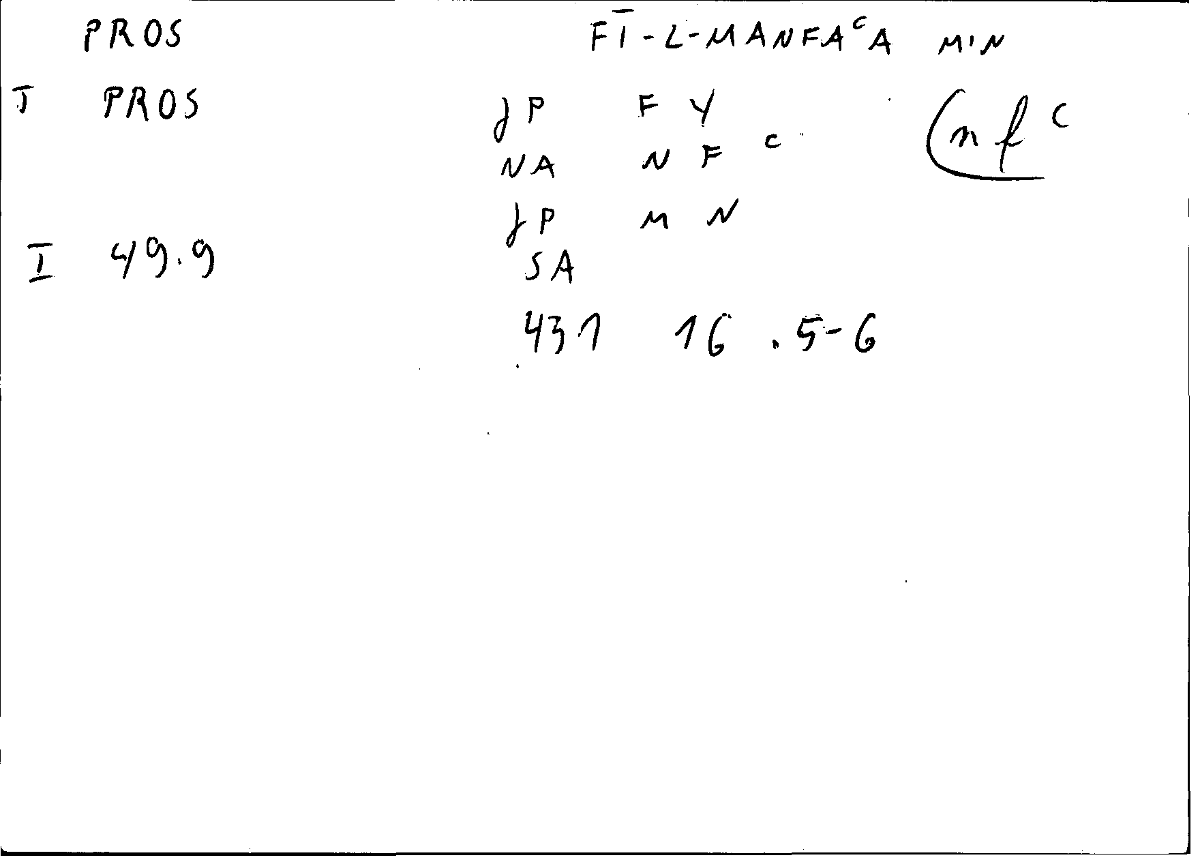 PROS FĪ-L-MANFAᶜA MIN
J PROS JP F Y (nfᶜ
NA N F ᶜ
JP M N
I 49.9 SA
431 16 .5-6